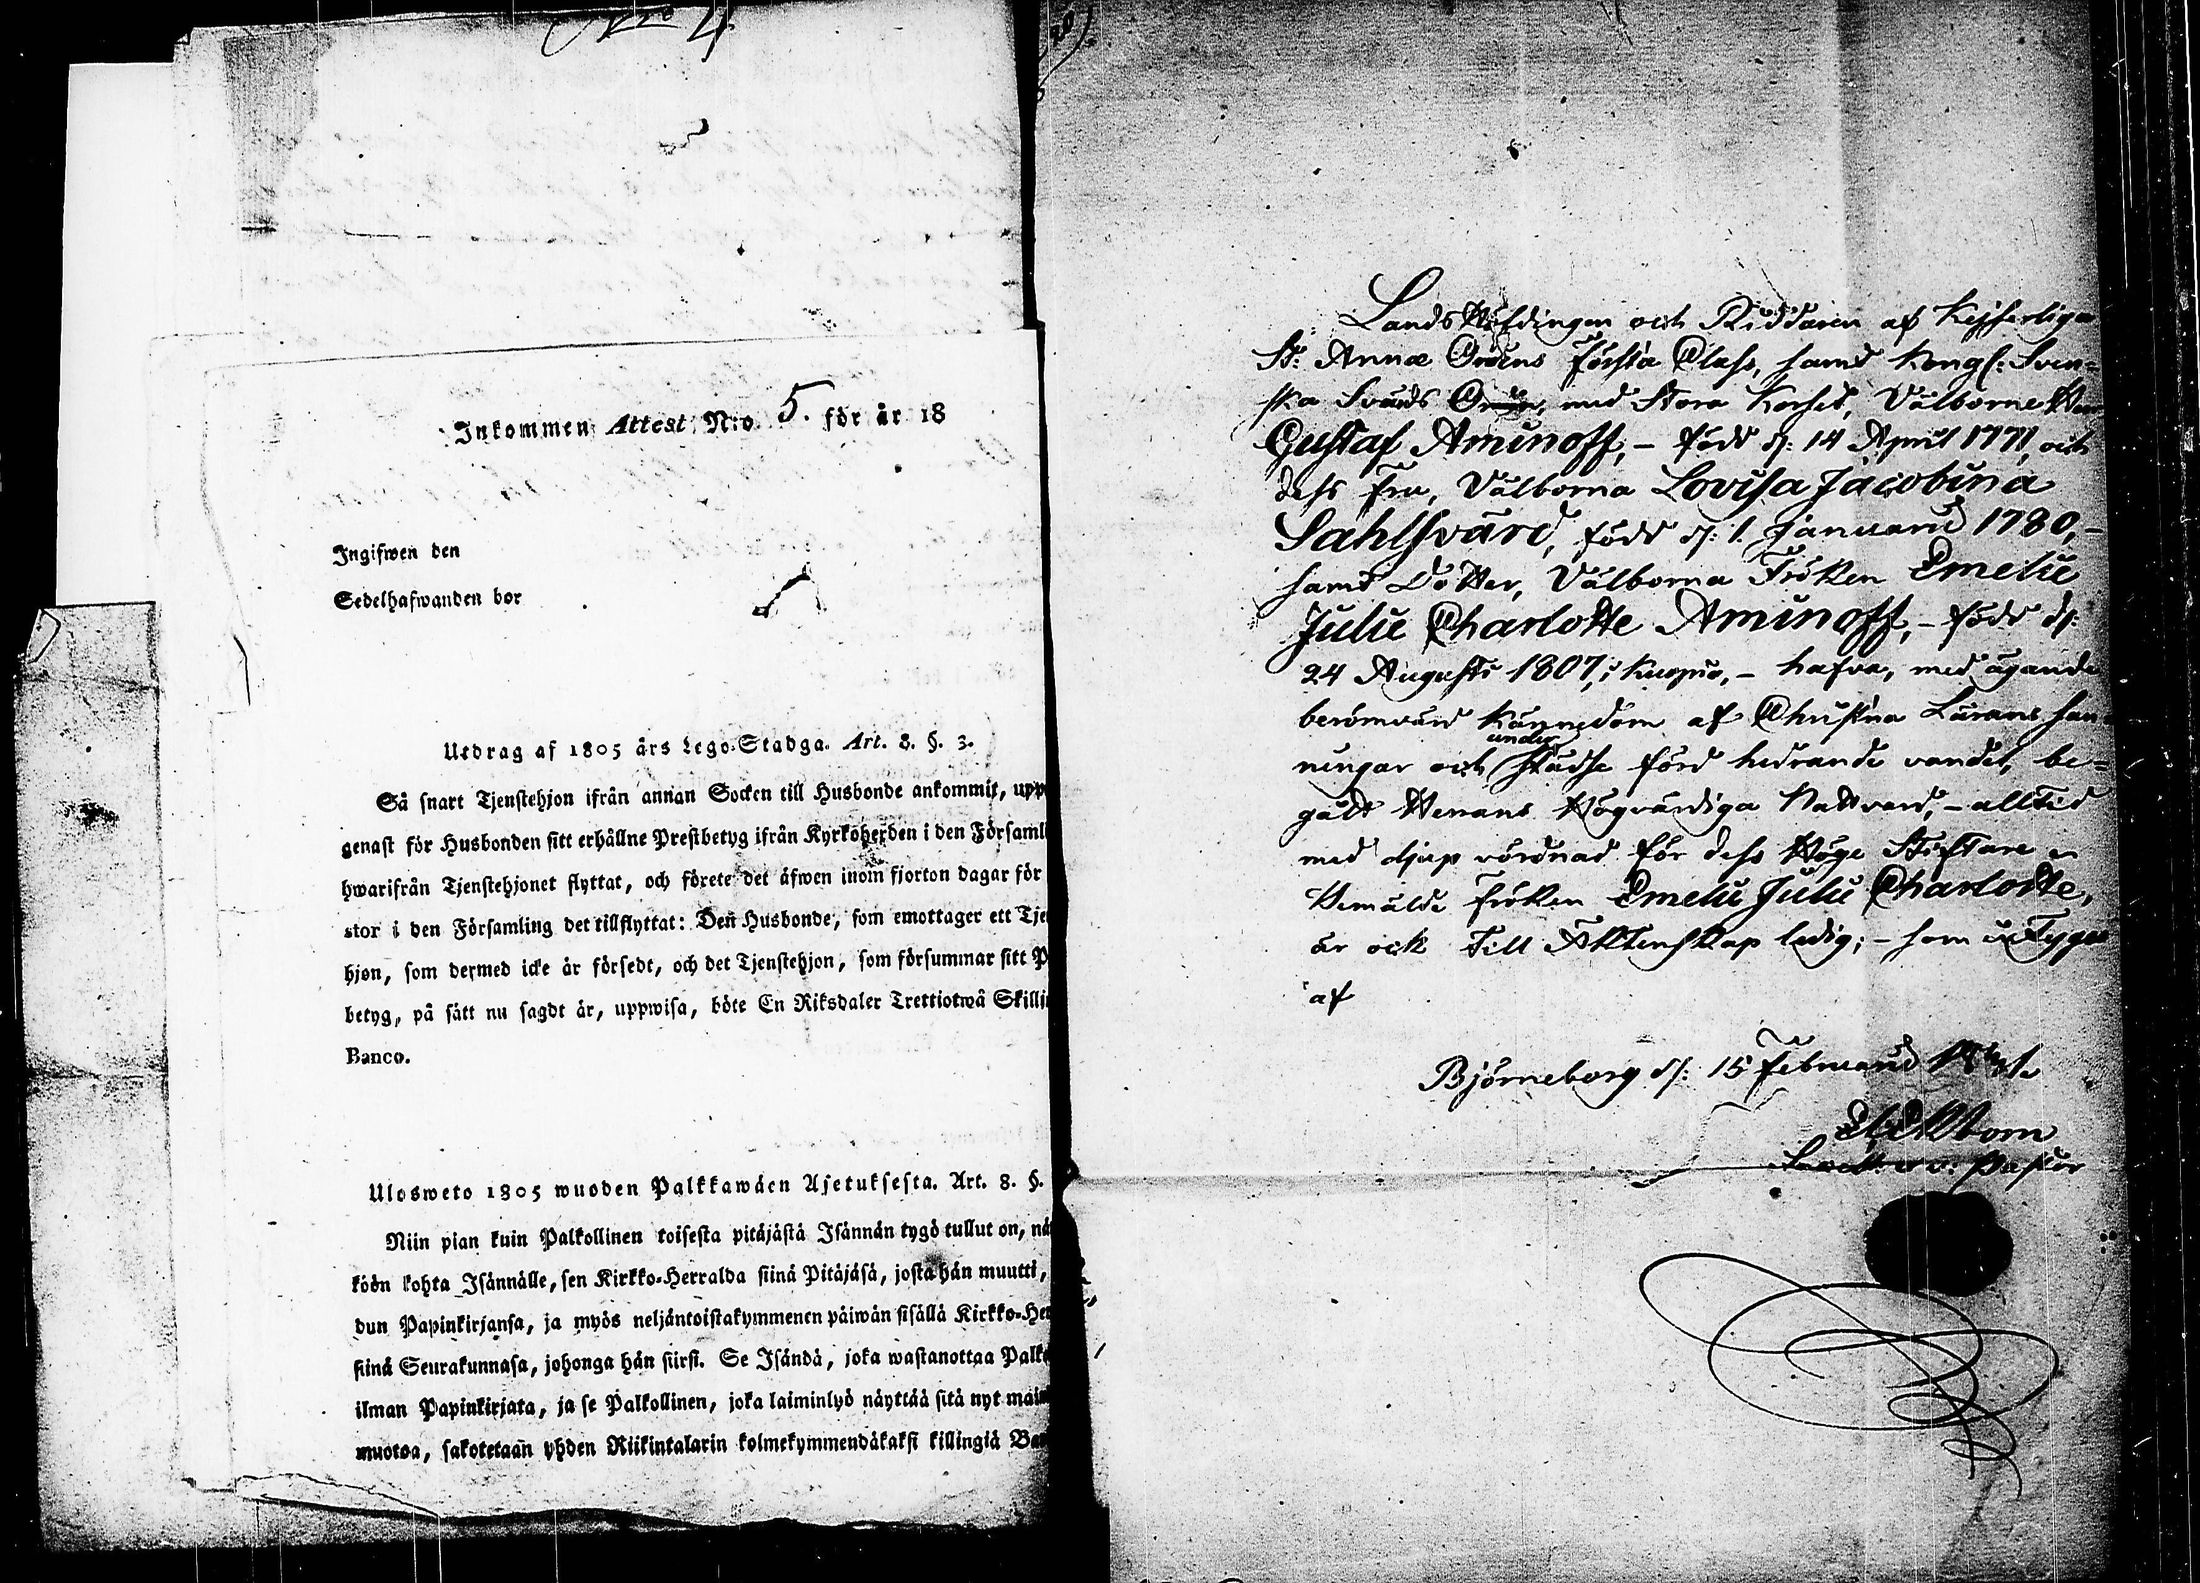 N:o 4.
Inkommen Attest N:o 5. för år 18
Ingifwen den
Sedelhafwanden bor
Utdrag af 1805 års Lego-Stadga. Art. 8. §. 3.
Så snart Tjenstehjon ifrån annan Socken till Husbonde ankommit, upp
genast för Husbonden sitt erhållne Prestbetyg ifrån Kyrkoherden i den Församl
hwarifrån Tjenstehjonet flyttat, och förete det äfwen inom fjorton dagar för
stor i den Församling det tillflyttat: Den Husbonde, som emottager ett Tje
hjon, som dermed icke är försedt, och det Tjenstehjon, som försummar sitt P
betyg, på sätt nu sagdt är, uppwisa, böte En Riksdaler Trettiotwå Skilli
Banco.
Ulosweto 1805 wuoden Palkkawäen Asetuksesta. Art. 8. §.
Niin pian kuin Palkollinen toisesta pitäjästä Isännän tygö tullut on, nä
köön kohta Isännälle, sen Kirkko-Herralda siinä Pitäjäsä, josta hän muutti,
dun Papinkirjansa, ja myös neljäntoistakymmenen päiwän sisällä Kirkko-Her
siinä Seurakunnasa, johonga hän siirsi. Se Isändä, joka wastanottaa Palko
ilman Papinkirjata, ja se Palkollinen, joka laiminlyö näyttää sitä nyt main
muotoa, sakotetaan yhden Riikintalarin kolmekymmendäkaksi killingiä Ban
LandsHöfdingen och Riddaren af Kejserliga
St: Annæ Ordens Första Class, samt Kongl: Sven-
ska Svärds Orden, med Stora Korset, Välborne Herr
Gustaf Aminoff, - född d: 14 April 1771, och
dess Fru, Välborna Lovisa Jacobina
Sahlsvärd, född d: 1. Januarii 1780, -
samt Dotter, Välborna Fröken Emelie
Julie Charlotte Aminoff, - född d:
24 Augusti 1807, i Kuopio, - hafva, med ägande
berömvärd kännedom af Christna Lärans san
ningar och under städse förd hedrande vandel, be-
gått Herrans Högvärdiga Nattvard, - alltid
med djup vördnad för dess Höge Stiftare
Bemälde Fröken Emelie Julie Charlotte,
är ock till Äktenskap ledig; - som intygas
af
Björneborg d: 15 Februarii
Pastor